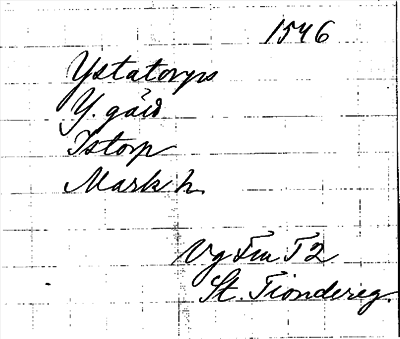 1546
Ystatorps
Y. gård
Istorp
Mark h.
Vg Fm T2
St. Tiondereg.